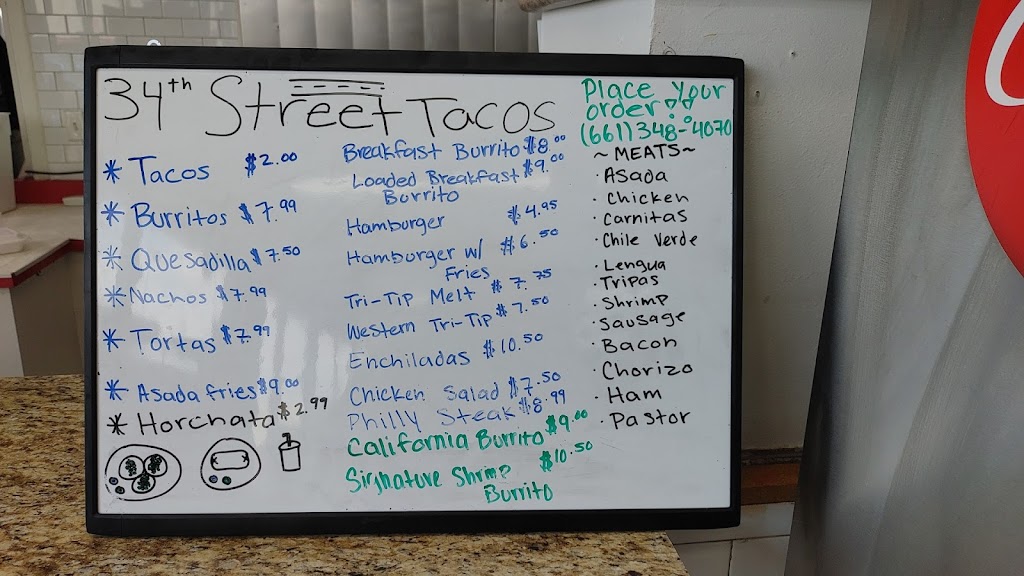 34th Street Tacos
* Tacos $2.00
* Burritos $7.99
* Quesadilla $7.50
* Nachos $7.99
* Tortas $7.99
* Asada fries $9.00
* Horchata $2.99
Breakfast Burrito $8.00
Loaded Breakfast $9.00
Burrito
Hamburger $4.95
Hamburger w/ $6.50
Fries
Tri-Tip Melt $7.75
Western Tri-Tip $7.50
Enchiladas $10.50
Chicken Salad $7.50
Philly Steak $8.99
California Burrito $9.00
Sirjnature Shrimp $10.50
Burrito
Place Your
order!!
(661)348-4070
~MEATS~
· Asada
· Chicken
· Carnitas
· Chile Verde
· Lengua
· Tripas
· Shrimp
· Sausage
· Bacon
· Chorizo
· Ham
· Pastor